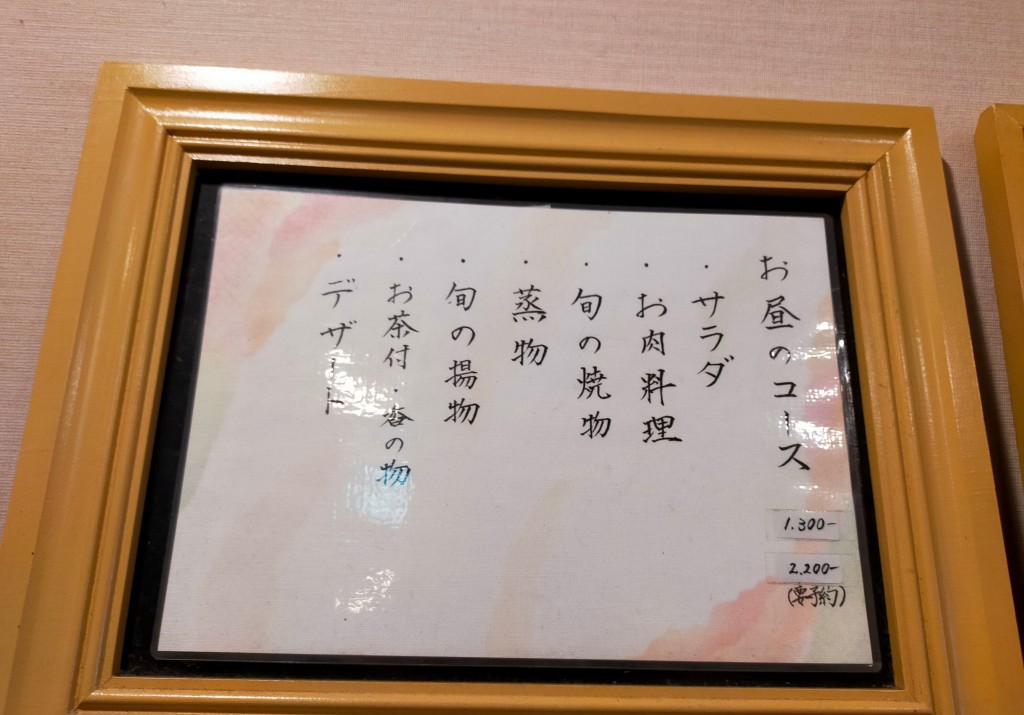 お昼のコース
1.300-
2.200-
(要予約)
・サラダ
・お肉料理
・旬の焼物
・蒸物
・旬の揚物
・お茶付・香の物
・デザート